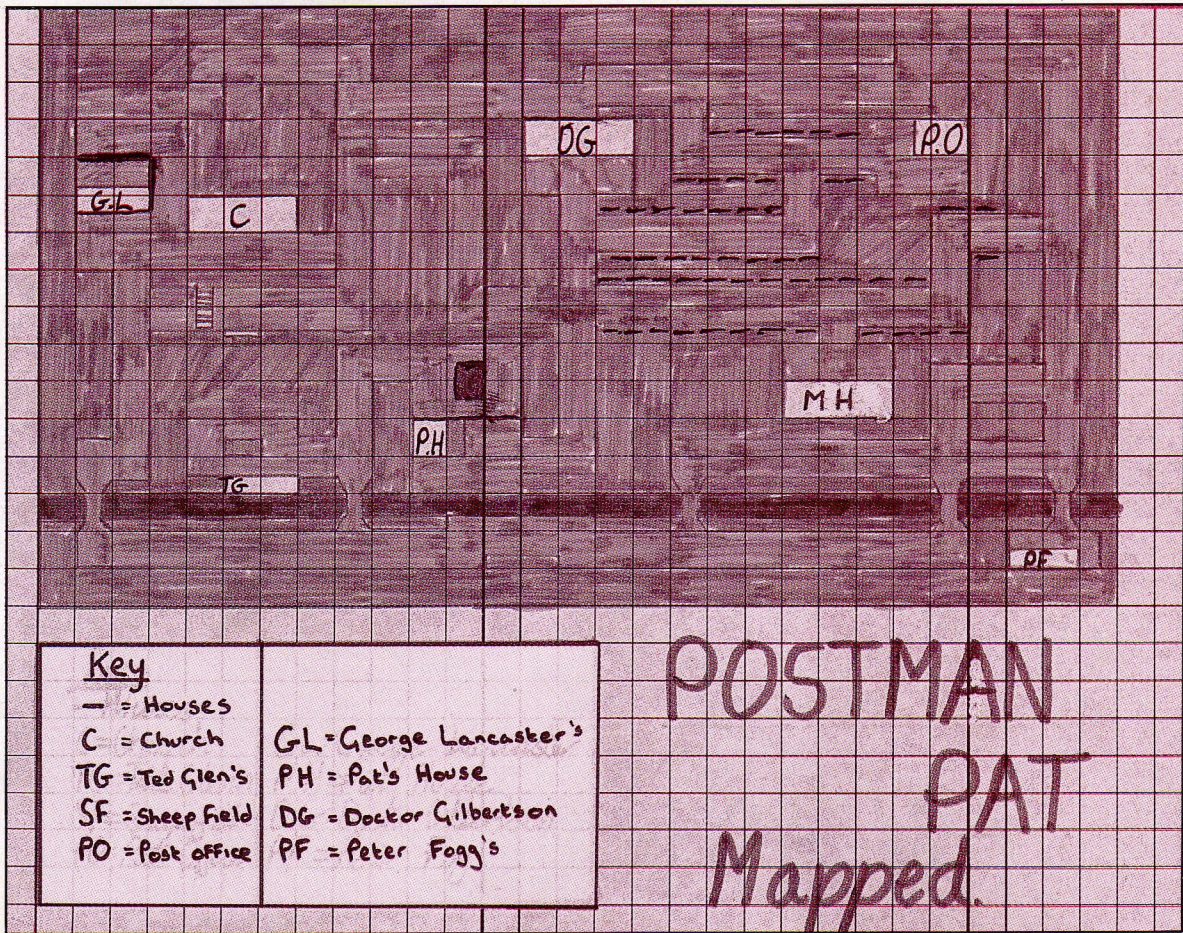 DG
P.O
G.L
C
M H
P.H
TG
PF
Key
— = Houses
C = Church
TG = Ted Glen's
SF = Sheep Field
PO = Post office
GL = George Lancaster's
PH = Pat's House
DG = Doctor Gilbertson
PF = Peter Fogg's
POSTMAN
PAT
Mapped.